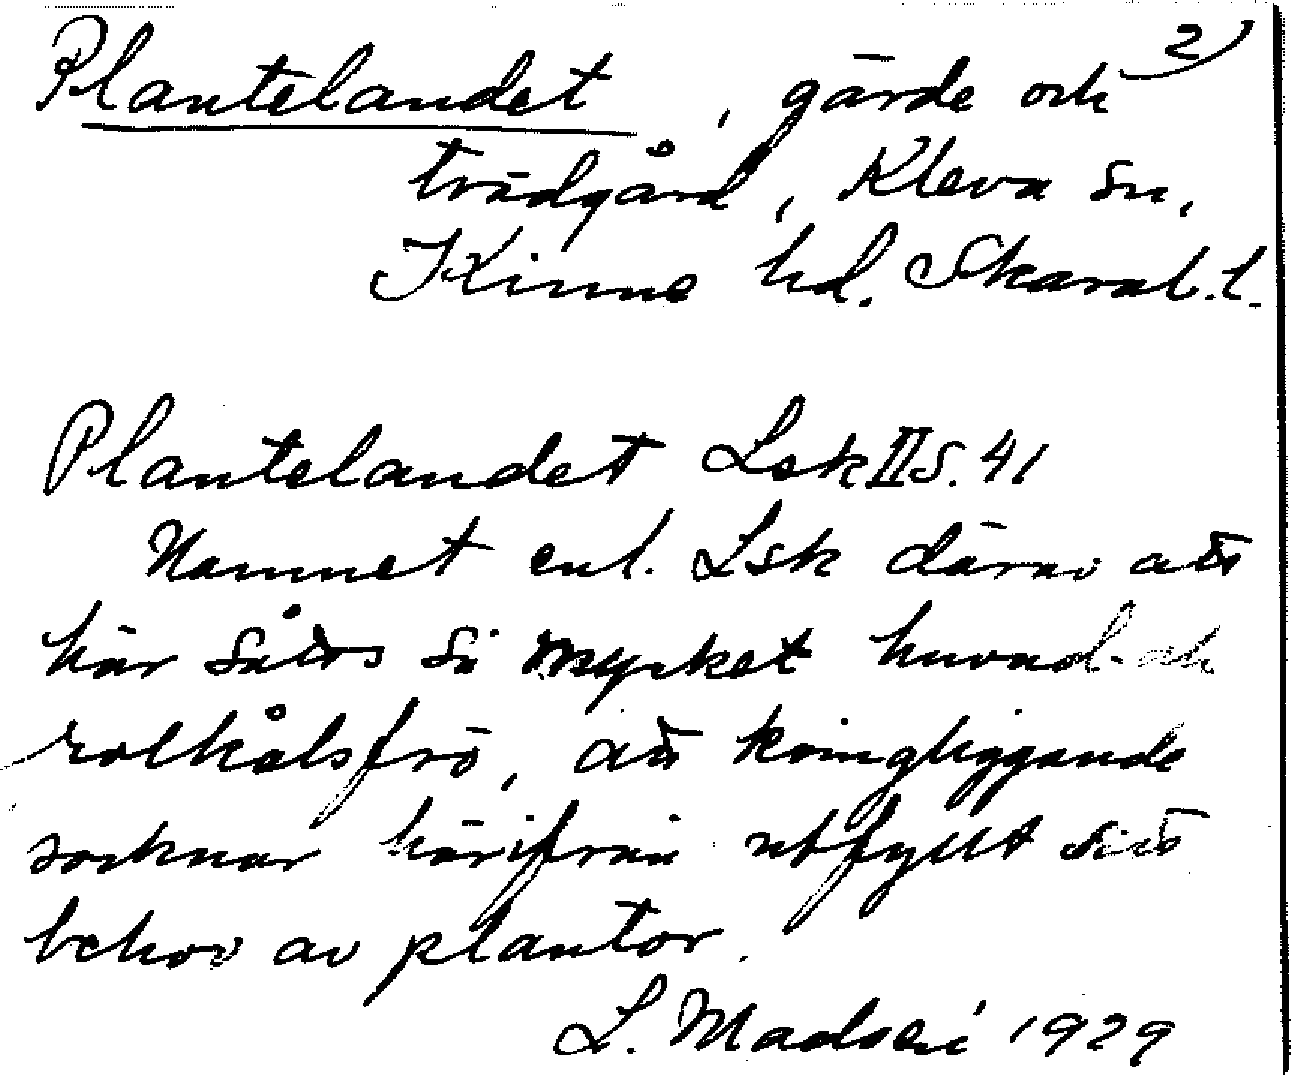 2)
Plantelandet, gärde och
trädgård, Kleva sn,
Kinne hd. Skarab. l.
Plantelandet Lsk II S. 41
Namnet enl. Lsk därav att
här såtts så mycket huvud- och
rotkålsfrö, att kringliggande
socknar härifrån utfyllt sitt
behov av plantor.
L. Madsén 1929